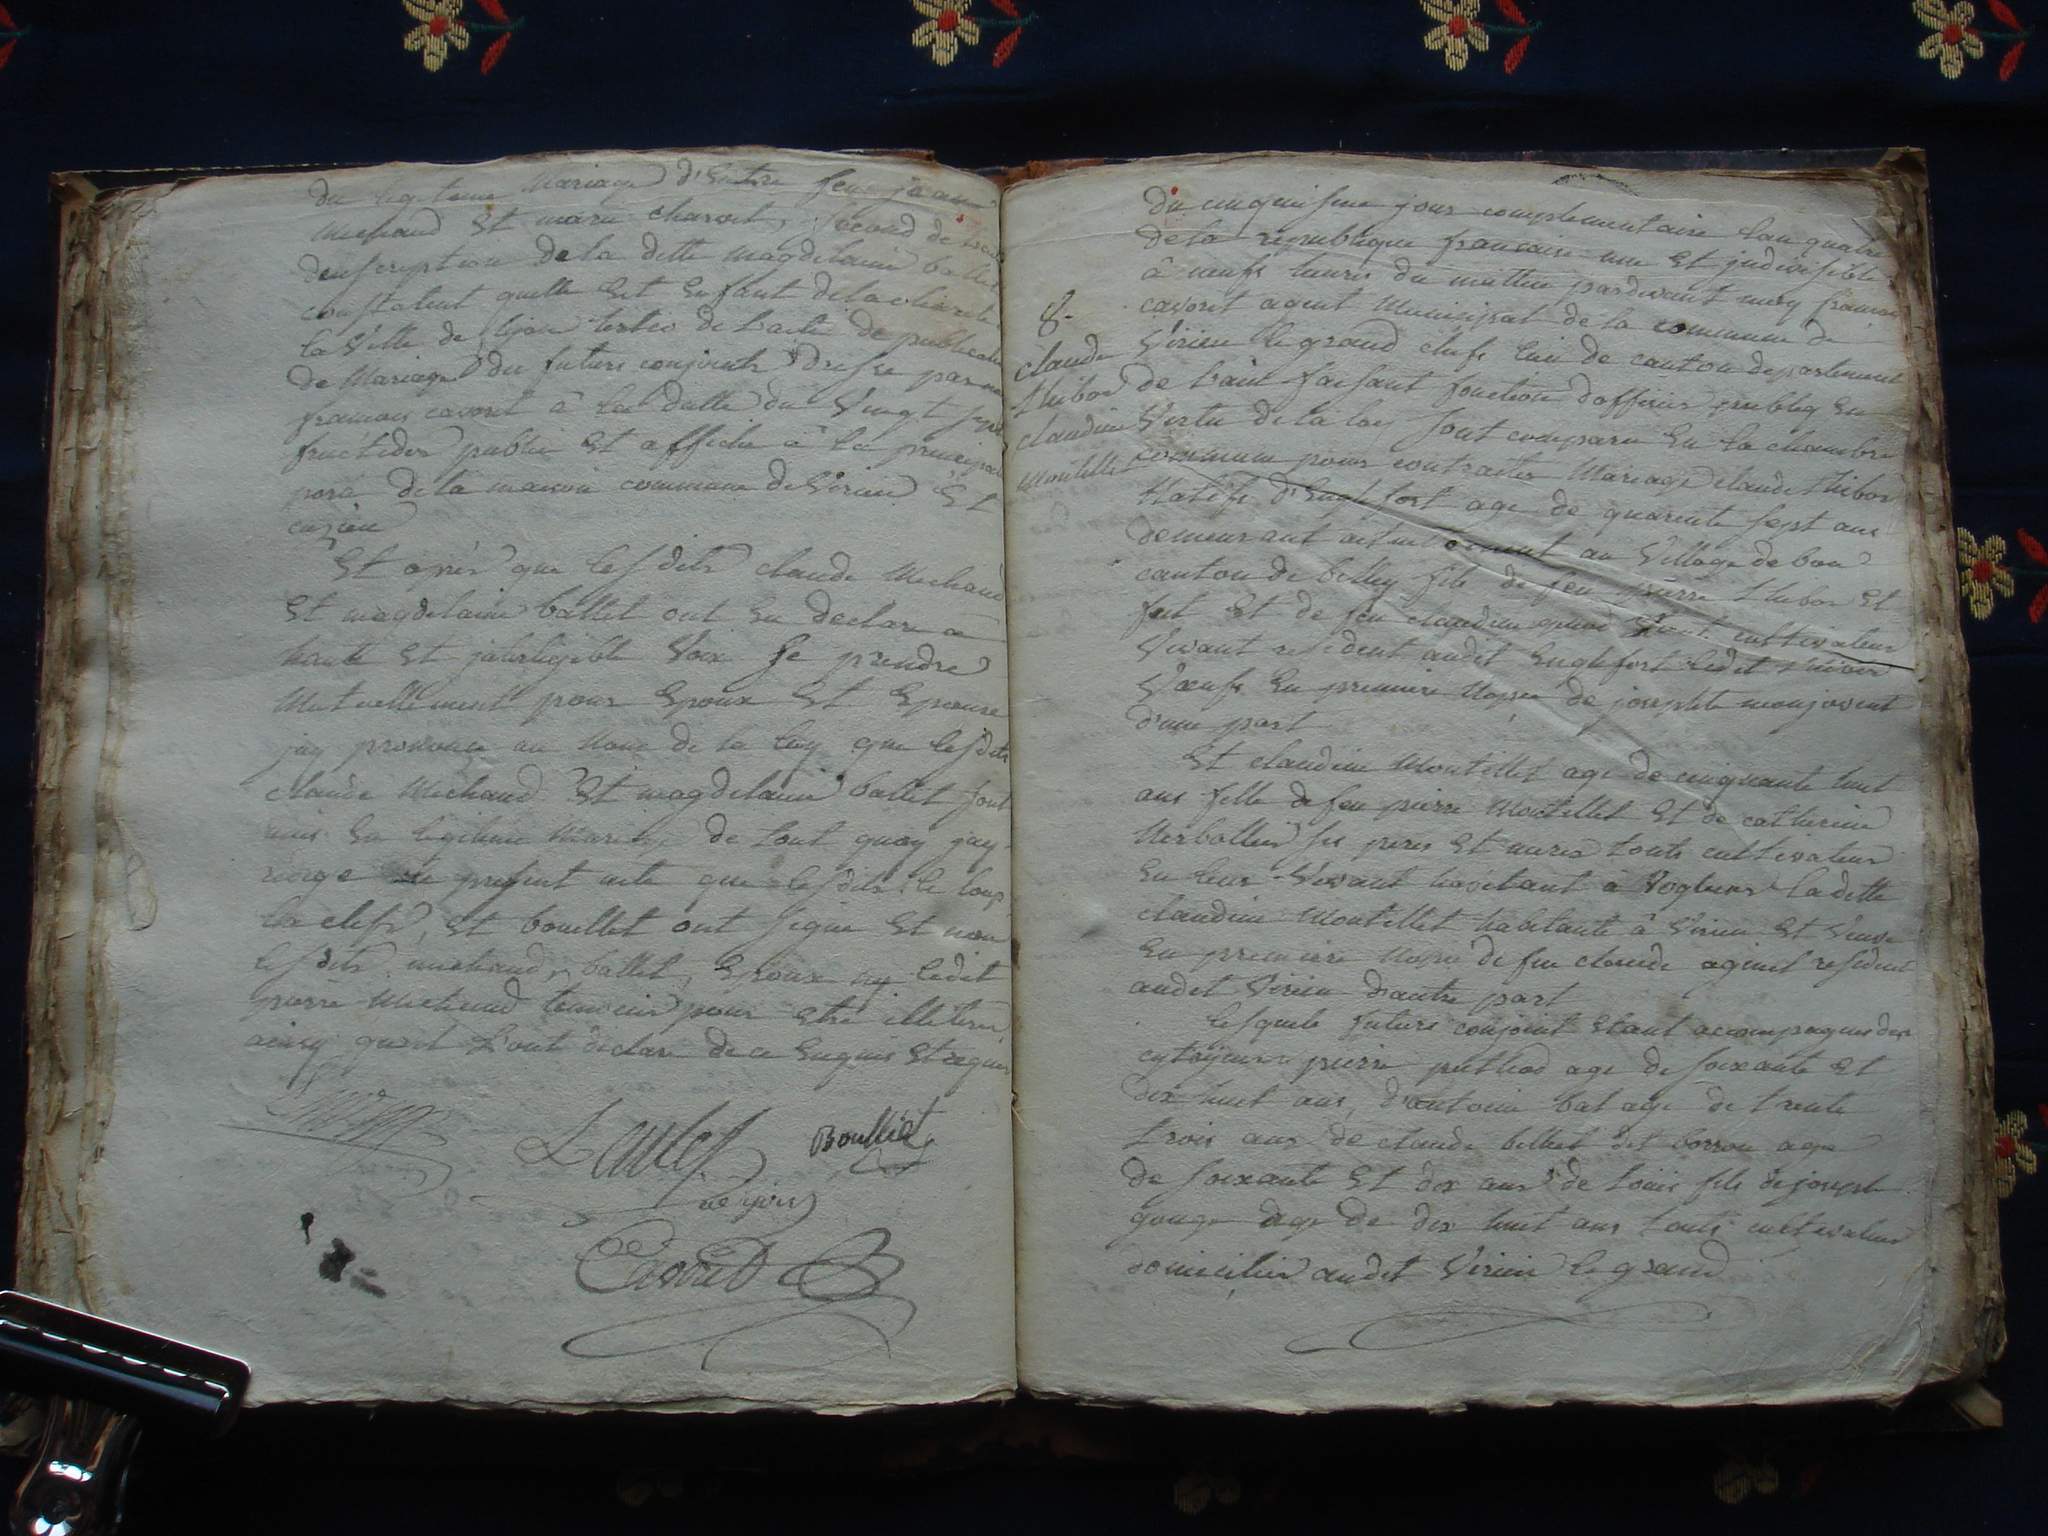 du legitime Mariage d'Entre feu jean
Michaud Et marie charvet, second de
denscription de la ditte magdelaine ballet
constatent quelle Est Enfant de la charite
la Ville de lyon de l'acte de publication
de Mariage des futurs conjoints dresse par
francois cavoret â la datte du Vingt sept
fructidor publie Et affiche â la principal
porte de la maison commune de Virieu Et
cuzieu
Et après que lesdits claude Michaud
Et magdelaine ballet ont Eu declare a
haute Et jntelligible Voix Se prendre
Mutuellement pour Epoux Et Epouse
jay prononce au Nom de la loy que lesdits
claude Michaud Et magdelaine ballet sont
unis En legitime Mariage de tout quoy jay
rerige le present acte que lesdits le loup
la clef, Et bouillet ont signe Et non
lesdits michaud, ballet, Epoux ny ledit
pierre Michaud temoin pour etre illetere
ainsy quil L'ont declare de ce Enquis Et requis
Bouilliet
Cavoret
Du cinquiesme jour complementaire lan quatre
de la republique francaise une Et jndivisible
â neufs heures du mattin pardevant moy francois
cavoret agent Municipal de la commune de
8.
Virieu le grand chefs lieu de canton departement
claude
thibos de L'ain faisant fonction d'officier public En
claudine Vertu de la loy sont comparu En la chambre
Montillet commune pour contracter Mariage claude thibos
Natifs d'Englefort age de quarente sept ans
demeurant actuellement au Village de bon
canton de belley fils de feu pierre thibos Et
fut Et de feu claudine cultivateur
Vivant resident audit Englefort ledit thibos
Vœufs En premiere Nopce de josephte monjovent
d'une part
Et claudine Montillet age de cinquante huit
ans fille de feu pierre Montillet Et de catherine
ses peres Et meres touts cultivateur
En leur Vivant habitant â Voglens la ditte
claudine Montillet habitante â Virieu Et Veuve
En premiere Nopce de feu claude aginet resident
audit Virieu d'autre part
lesquels futurs conjoint Etant accompagnes des
cytoyens pierre puthod age de soixante Et
dix huit ans, d'antoine bal age de trente
trois ans de claude billiet dit borron age
de soixante Et dix ans de Loüis fils de joseph
gouge age de dix huit ans touts cultivateur
domicilier audit Virieu le grand